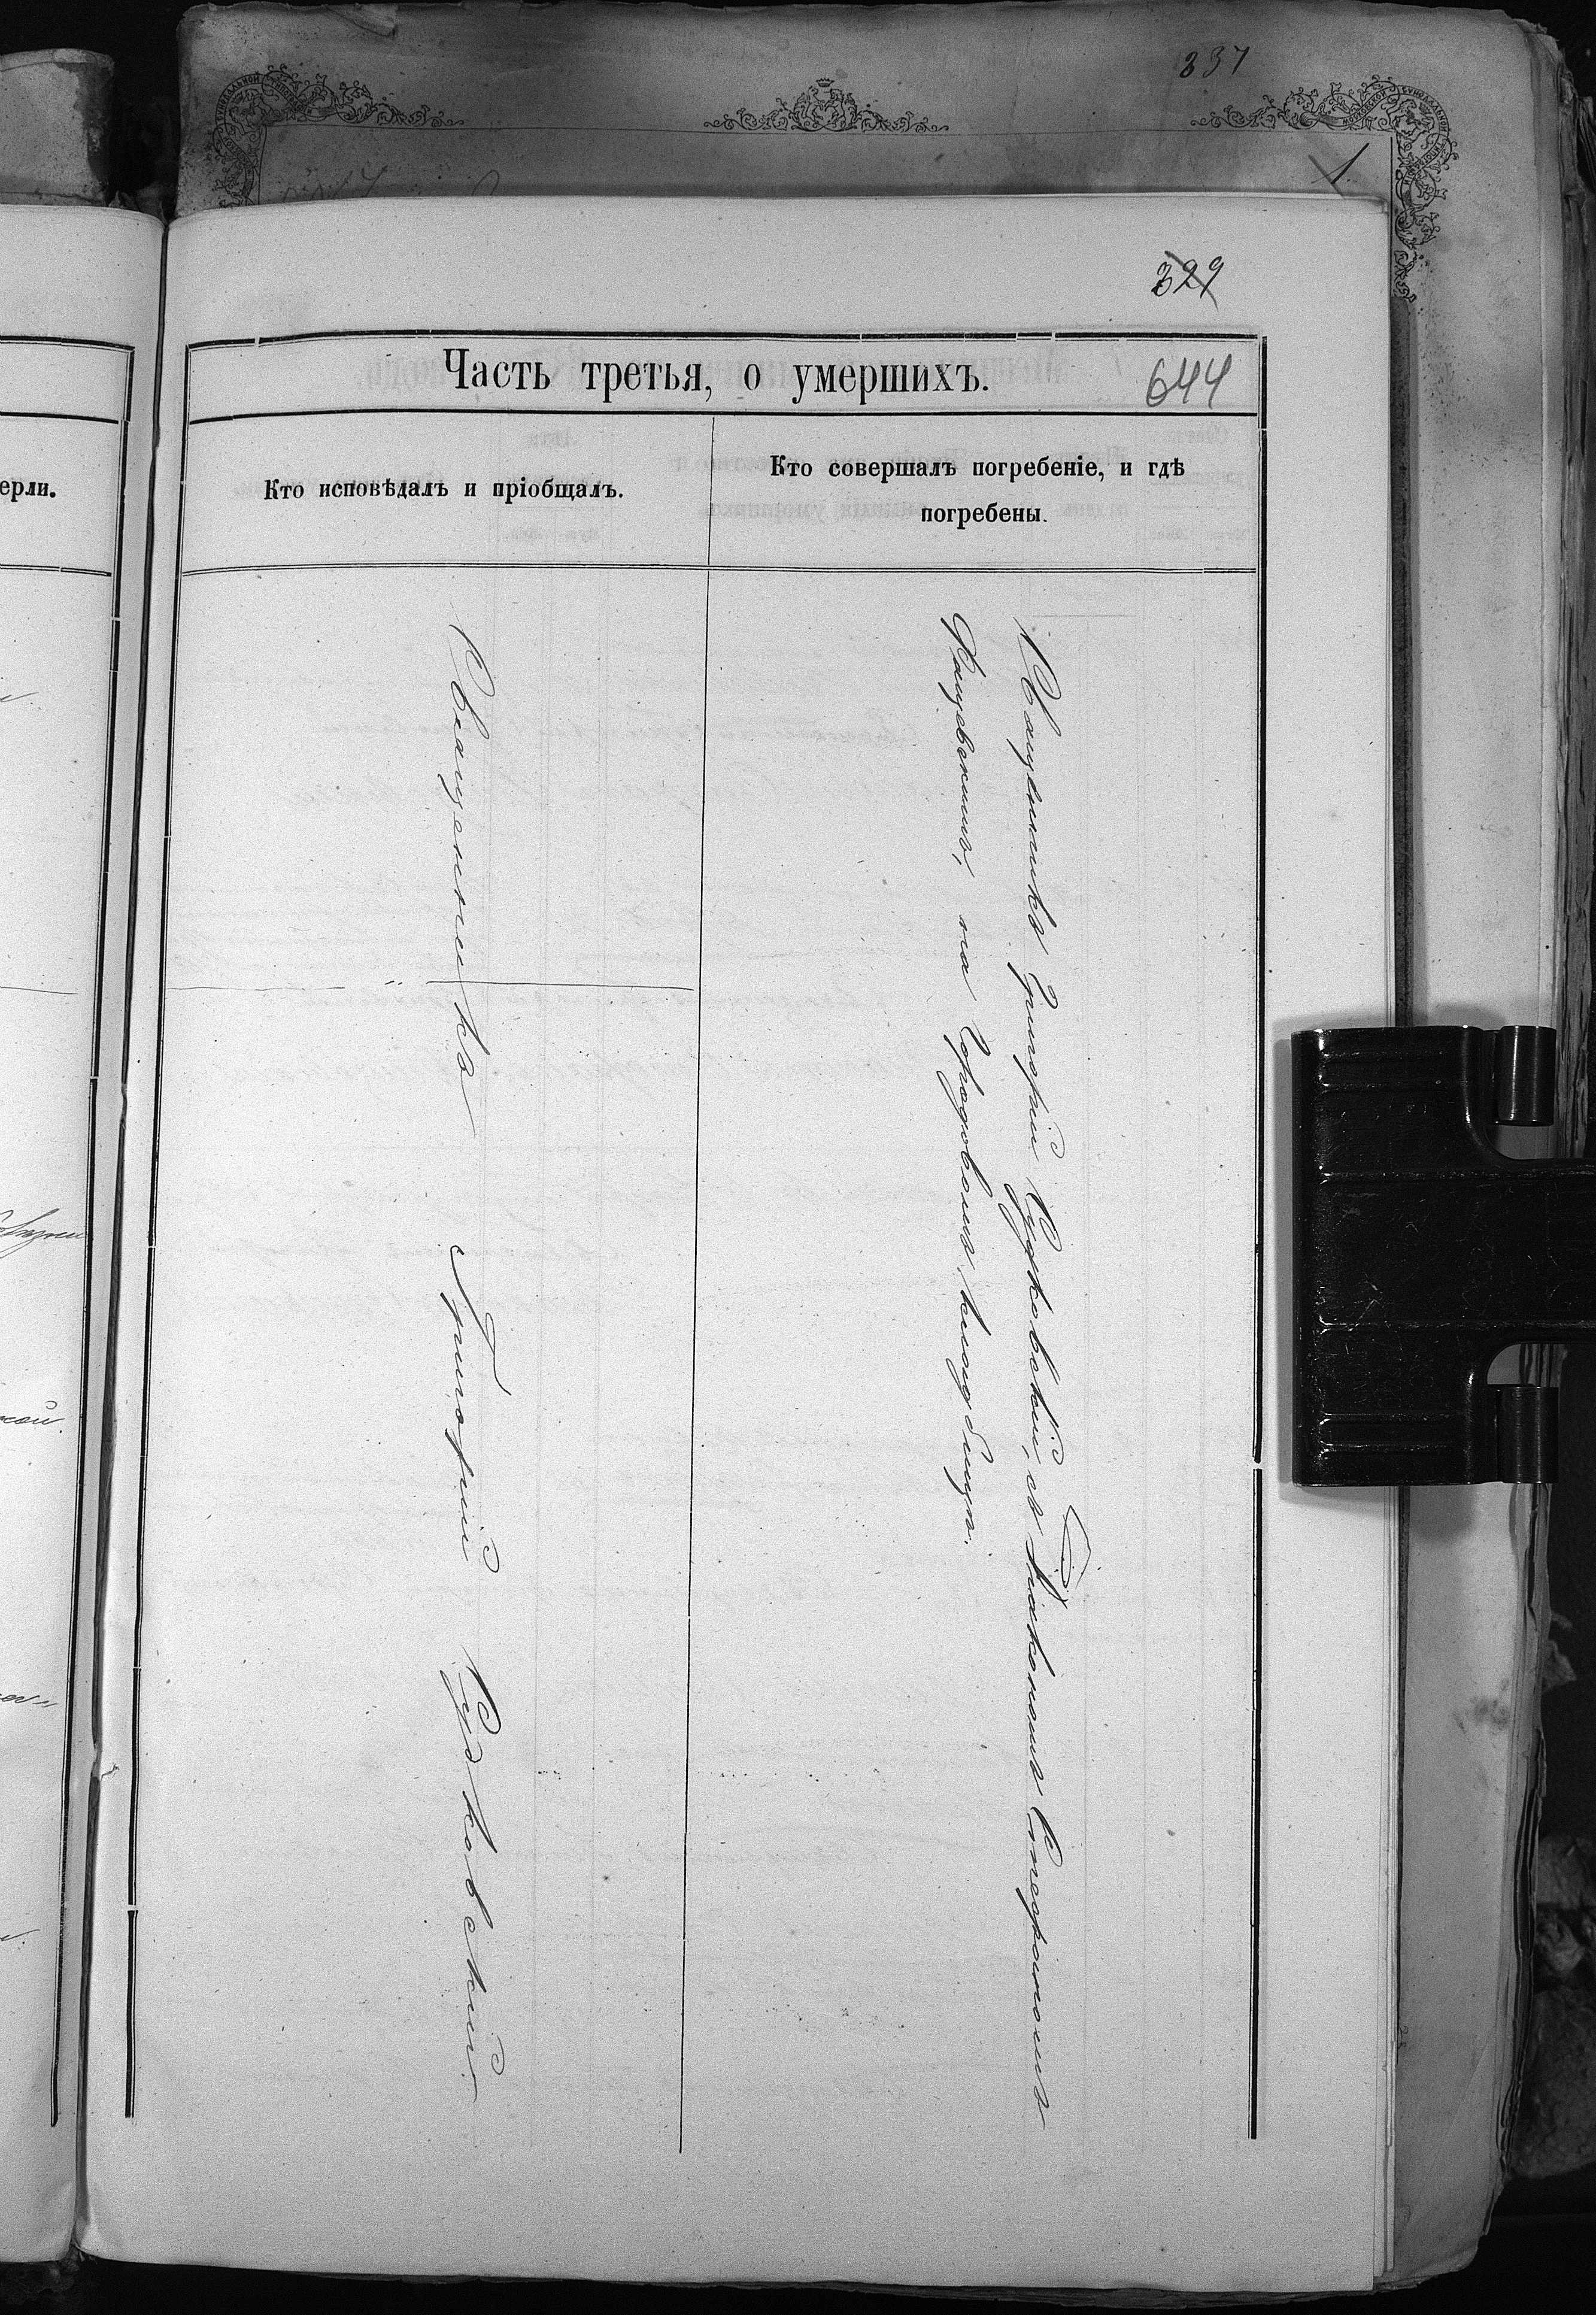 337
1.
329
Часть третья, о умершихъ.
644
ерли.
Кто исповѣдалъ и пріобщалъ.
Кто совершалъ погребеніе, и гдѣ
погребены.
Священникъ Григорій Судковскій
Священникъ Григорій Судковскій, съ Діакономъ Стефаномъ
на Городовомъ кладбищѣ.